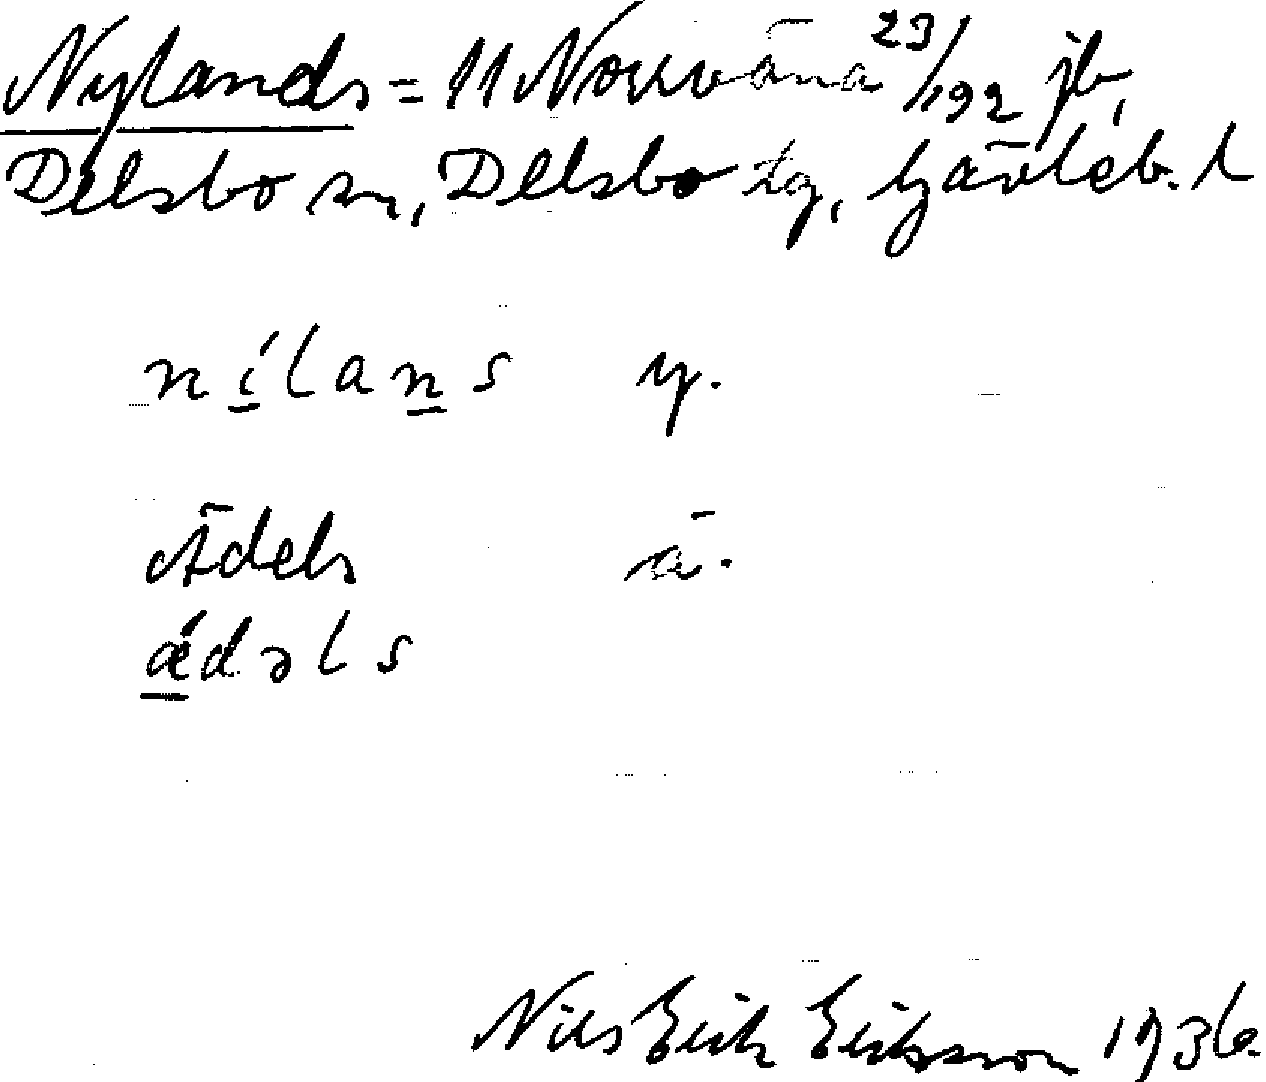 Nylands = 11 Norrväna 23/192 jb,
Delsbo sn, Delsbo tg, Gävleb. l
nílans y.
Ädels ä.
ǽdəls
Nils Erik Eriksson 1936.